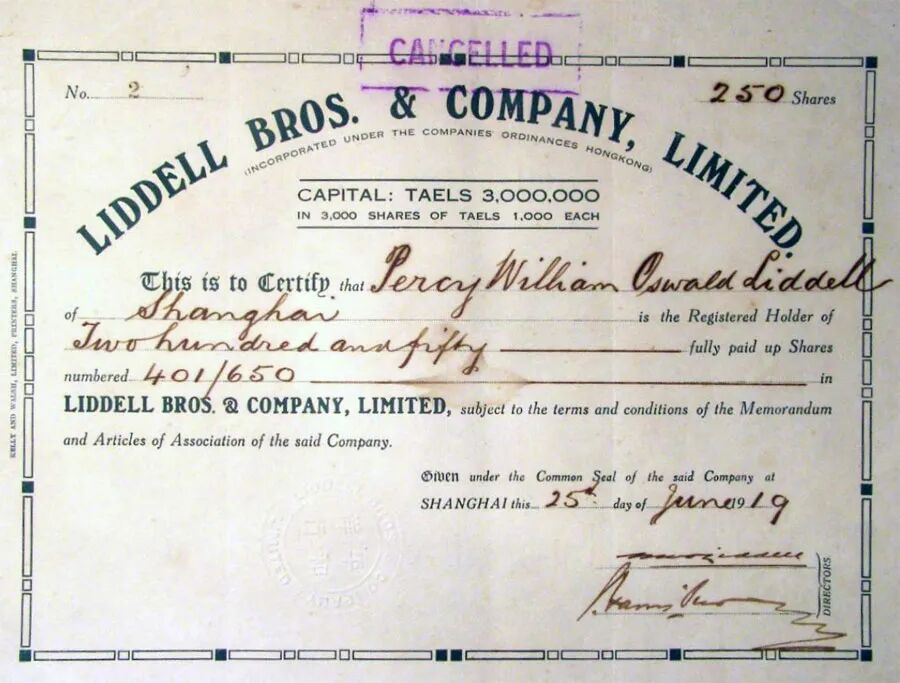 CANCELLED
No. 2
250 Shares
LIDDELL BROS. & COMPANY, LIMITED
(INCORPORATED UNDER THE COMPANIES' ORDINANCES HONGKONG)
CAPITAL: TAELS 3,000,000
IN 3,000 SHARES OF TAELS 1,000 EACH
This is to Certify that Percy William Oswald Liddell
of Shanghai is the Registered Holder of
Two hundred and fifty fully paid up Shares
numbered 401/650 in
LIDDELL BROS. & COMPANY, LIMITED, subject to the terms and conditions of the Memorandum
and Articles of Association of the said Company.
Given under the Common Seal of the said Company at
SHANGHAI this 25th day of June 1919
DIRECTORS
KELLY AND WALSH, LIMITED, PRINTERS, SHANGHAI.